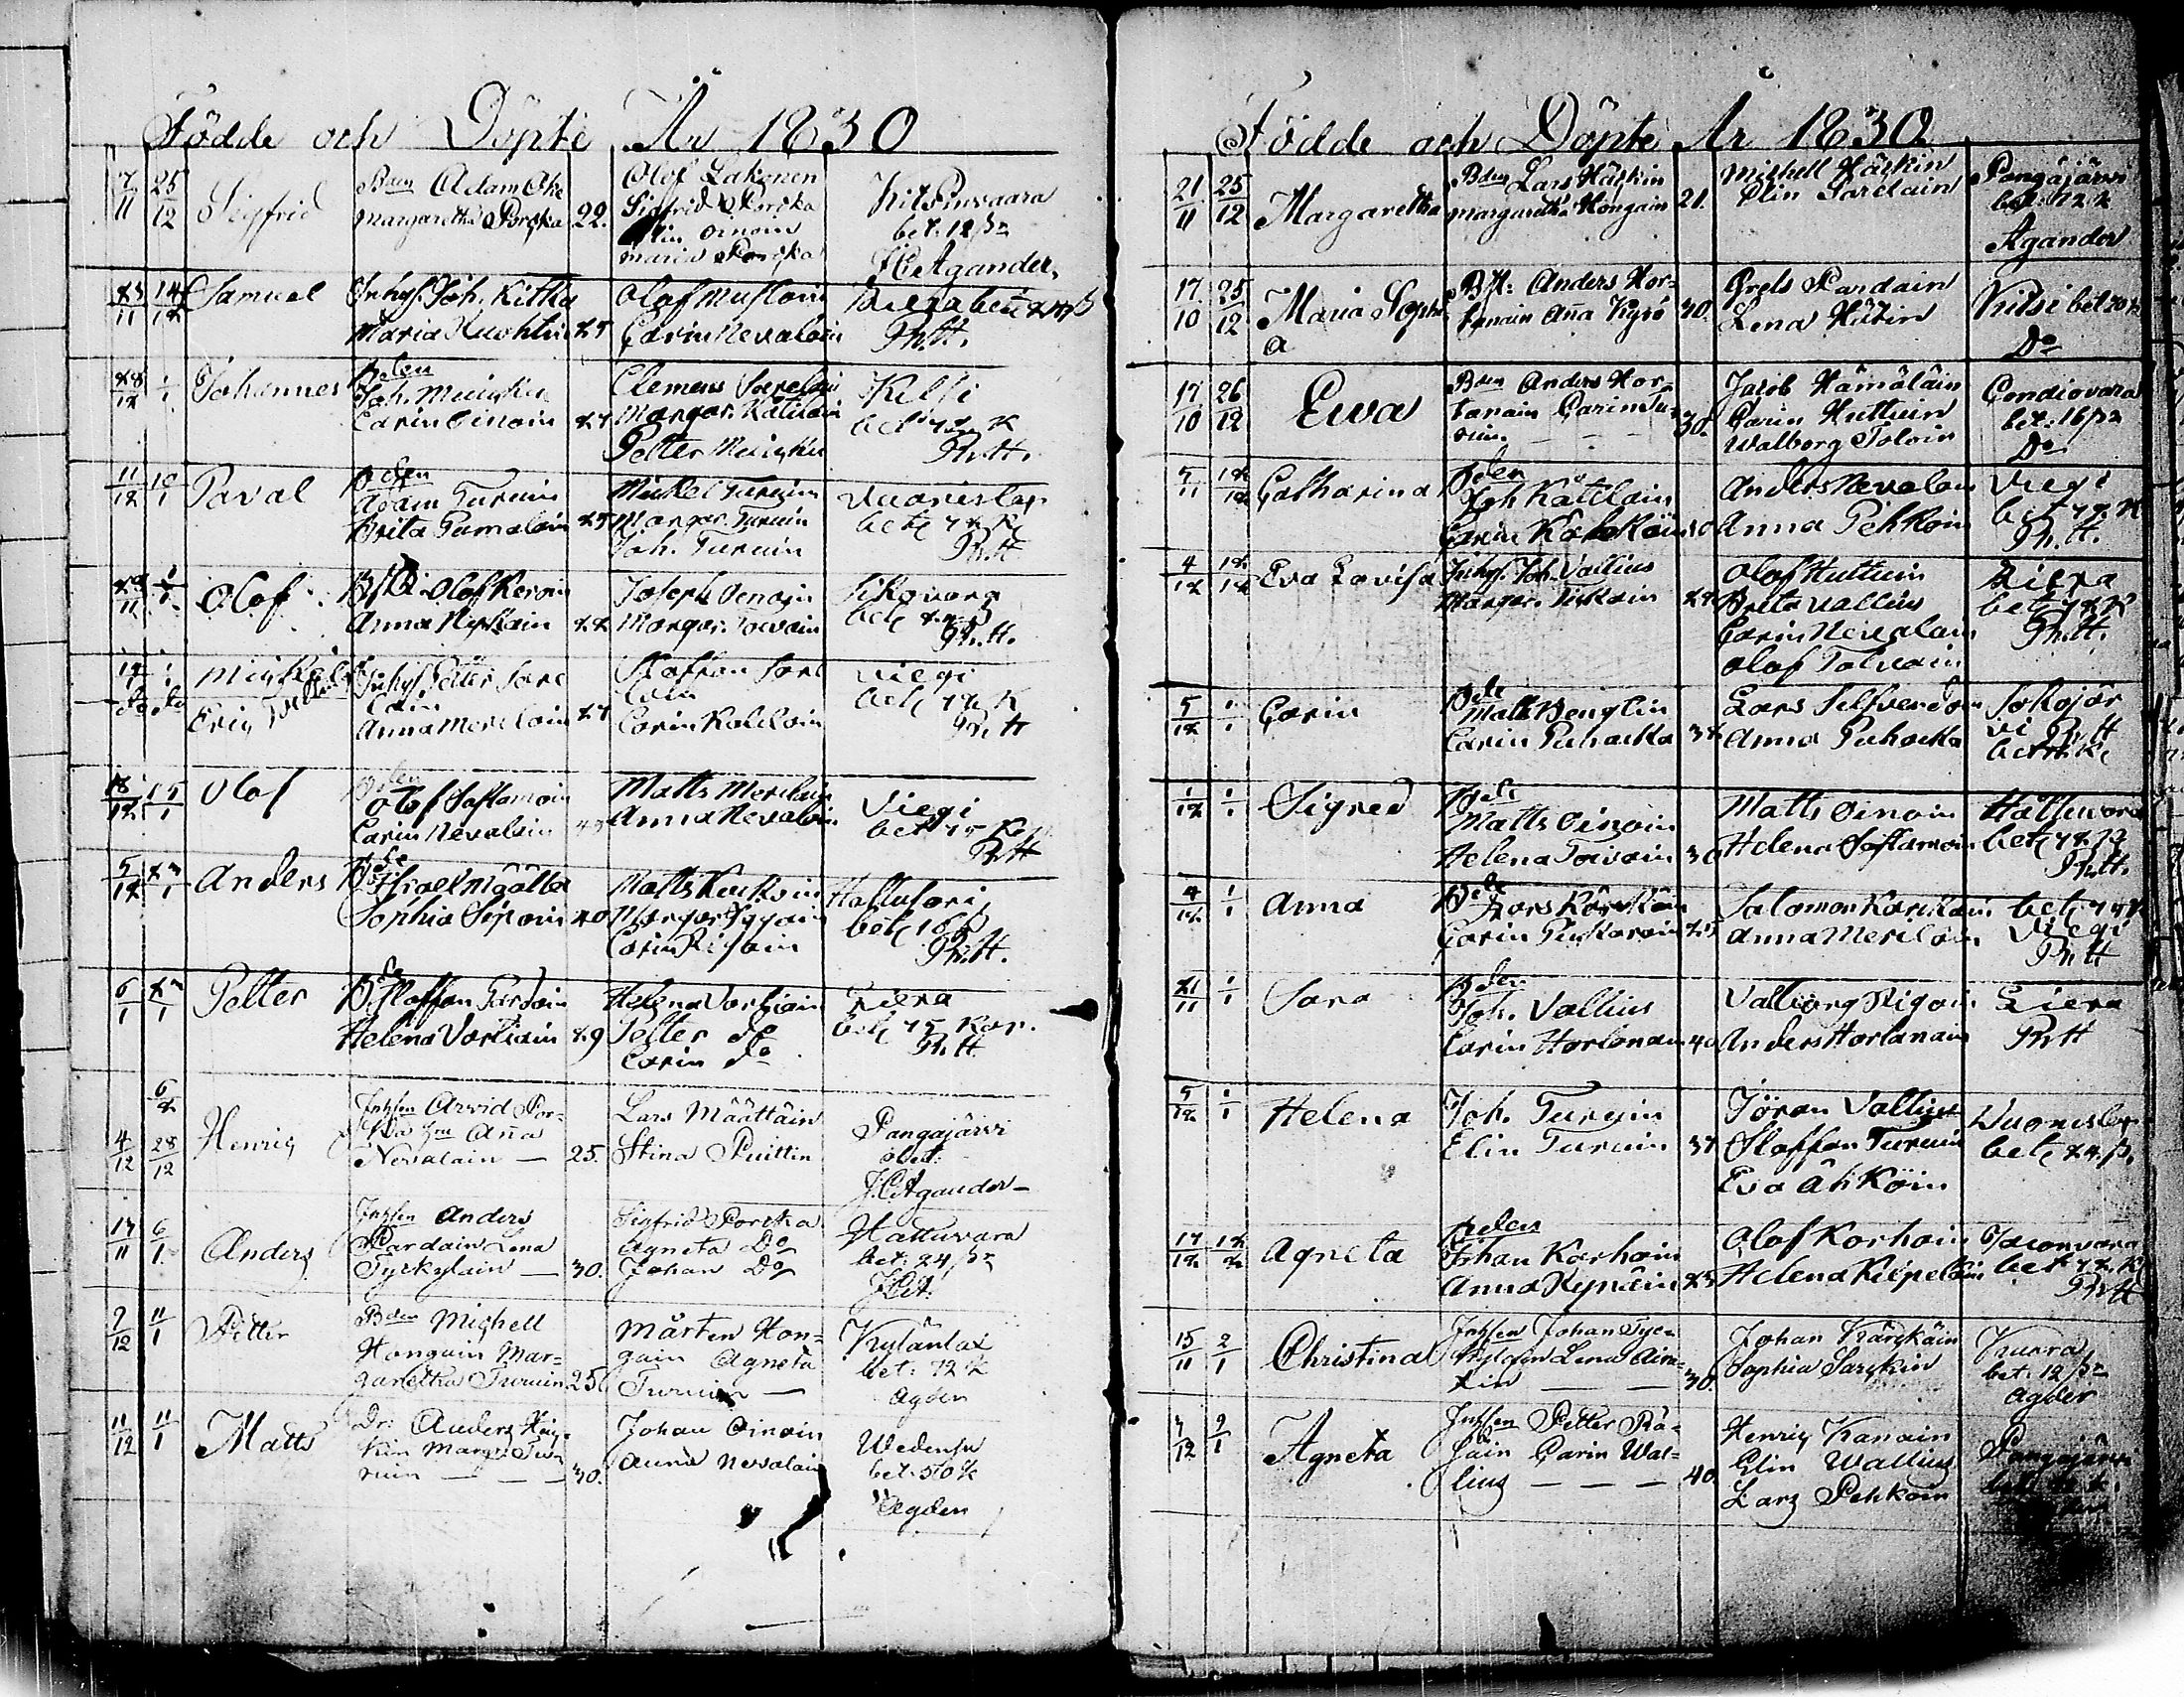 Födde och Döpte År 1830
7/11 25/12 Sigfrid Bden Adam Oke Margaretha Porska 22. Olof Lakonen Sigfrid Porska Elin Oinoin Maria Porska Kitsinvaara bet. 12 J.C. Agander
23/11 14/12 Samuel Inhys. Joh. Kitka Maria Huohtin 25 Olof Mustoin Carin Nevalain Liexa Pr.H.
28/12 1/1 Johannes Bden Joh. Muiku Carin Oinoin 27 Clemens Sarelain Margar. Kätilain Petter Muiku Kelsi bet 72 K Pr.H.
11/12 10/1 Paval Bden Adam Turuin Brita Timolain 25 Mickel Turuin Margar. Turuin Joh. Turuin Vuonislax bet 72 K Pr.H
29/11 1/1 Olof Olof Keroin Anna Ryskain 22 Joseph Oenoin Margar. Toivain Sikovara bet Pr.H.
Michel Erich Inhys Petter Sarelain Anna Merilain 27 Staffan Sarelain Carin Kätilain Viegi bet 72 K Pr.H
18/12 15/1 Olof Bden Olof Saslamoin Carin Nevalain Matts Merilain Anna Nevalain Viegi bet 75 K Pr.H
5/12 Anders Bde Israel Määtta Sophia Sipoin 40 Matts Kuckoin Margar. Carin Rigoin Hattusari bet 16 Pr.H.
6/1 Petter Bde Staffan Pardain Helena Vartiain 29 Helena Vartiain Petter do Carin do Liexa bet 75 Kop. Pr.H.
6/2
4/12 28/12 Henric Inhsen Arvid Porska hu Aña Nevalain — 25. Lars Määttäin Stina Puittin Pangajärvi obet. J.C. Agander
17/11 6/1 Anders Inhsen Anders Pardain Lena Tyrkylain — 30. Sigfrid Porska Agneta Do Johan Do Hattuvara bet: 24 J.C.A.
7/12 11/1 Petter Bden Michell Hongain Margaretha Turuin 25 Mårten Hongain Agneta Turuin — Kylänlax bet: 72 K Agder
11/12 11/1 Matts Dr. Anders Margr. Turuin — — 30. Johan Oinoin Anna Nevalain Wedensu bet: 50 K Agder
Födde och Döpte År 1830
21/11 25/12 Margaretha Bden Lars Häskin Margaretha Hongain 21. Michell Häskin Elin Sarelain Pangajärvi bet: 72 K Agander
17/10 25/12 Maria Sophia Anders Hortanain Aña Kyrö 40. Grels Pardain Lena Hütin Kitsi bet 20 K Do
17/10 26/12 Ewa Bden Anders Hortanain Carin Turuin. — — 30. Jacob Hämäläin Carin Huttuin Walborg Toloin Condiovara bet: 16 Do
5/11 12/12 Catharina Bden Joh Kätelain Carin Kärkäin 30 Anders Nevalain Anna Pehkoin Viegi bet 72 K Pr.H.
4/12 12/12 Eva Lovisa Inhys. Joh. Vallius Margar. Turkain 27 Olof Huttuin Brita Vallius Carin Nevalain Olof Tolvain Liexa bet 72 K Pr.H.
5/12 1/1 Carin Bde Matts Benglin Carin Puhacka 32 Lars Silfvendoin Anna Puhacka Jokajärvi Pr H
1/12 1/1 Sigred Bde Matts Oinoin Helena Toivain 30 Matts Oinoin Helena Saslamoin Hattuvara bet 72 K Pr.H.
4/12 1/1 Anna Bde Lars Kärckäin Carin Puckarain 25 Salomon Kärckäin Anna Merilain bet 75 K Viegi Pr.H
21/11 1/1 Sara Bden Joh. Vallius Carin Hortanain 40 Valborg Rigoin Anders Hortanain Liexa Pr H
5/12 1/1 Helena Joh. Turuin Elin Turuin 37 Jöran Vallius Staffan Turuin Eva Ähköin Vuonislax bet 24
17/12 Agneta Bden Johan Korhoin Anna Rynäin 25 Olof Korhoin Helena Kiepelain bet 72 K Pr.H
15/11 2/1 Christina Inhsen Johan Tyrkylain Lena Airaxin — — 30. Johan Kärckäin Sophia Sarckin Kuora bet: 12 Agder
7/12 9/1 Agneta Inhsen Petter Räsäin Carin Wallius — — — 40. Henric Kanain Elin Wallius Lars Pehkoin Pangajärvi